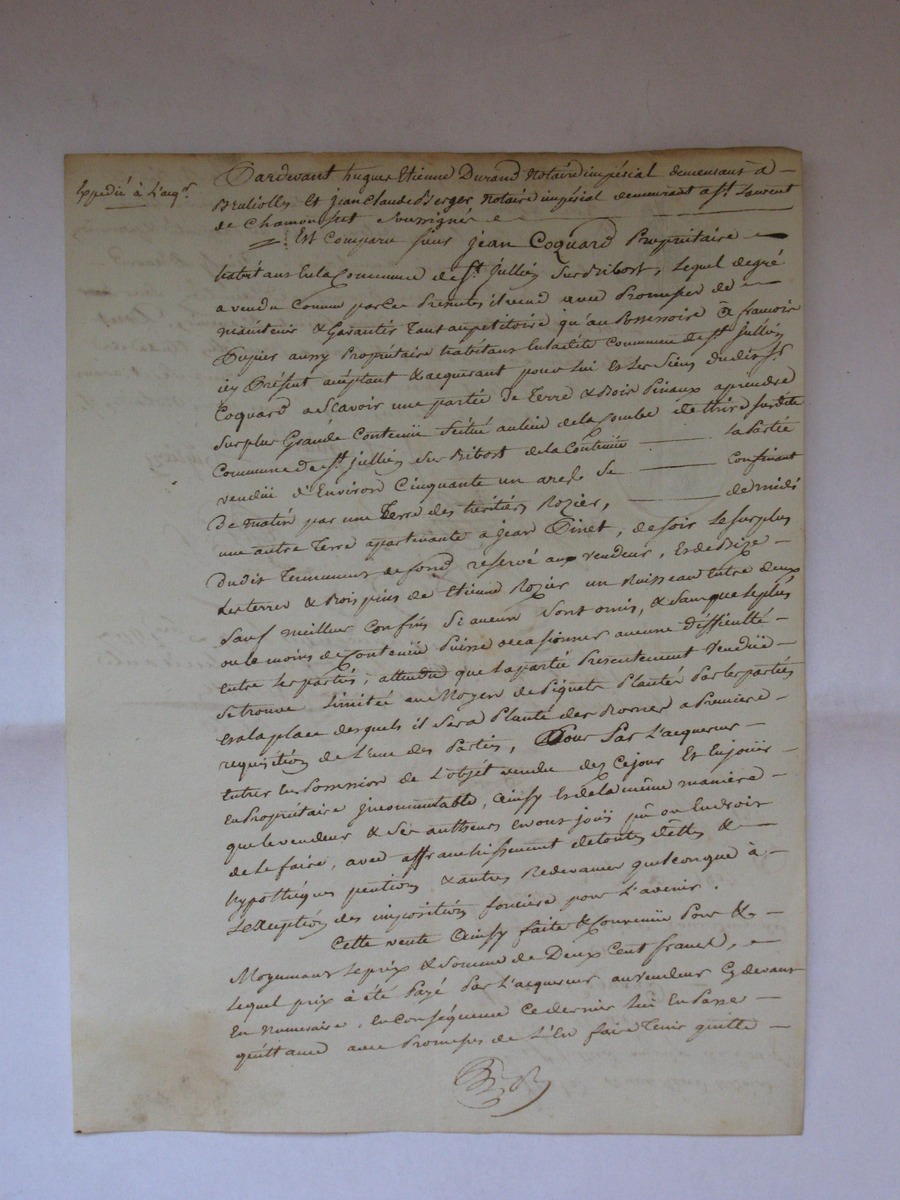 Expedié à L'acq.r
Pardevant hugues Etienne Durand Notaire impérial demeurant à
Brullolles Et Jean Claude Berger notaire impérial demeurant a St. Laurent
de Chamousset Soussignés
Est Comparu sieur Jean Coquard Propriétaire
habitant En la Commune de St. Jullien Sur Bibost, Lequel de gré
a vendu Comme par les Presentes il vend avec Promesses de
maintenir & Garantir Tant au petitoire qu'au Possessoire à francois
Dupier aussy Propriétaire habitant En ladite Commune de St. Jullien
icy Présent acceptant & acquerant pour Lui Et Les Siens dudit Sr.
Coquard a Scavoir une partie de Terre & Bois Pinaux aprendre
Sur plus Grande Contenüe Scitué au lieu de la Combe de Sur ladite
Commune de St. Jullien Sur Bibost de la Contenüe la Partie
vendüe d'Environ Cinquante un ares Se Confinant
De matin par une Terre des héritiers Rozier, de midi
une autre Terre appartenante à Jean Pinet, de soir Le surplus
Du dit Tennement de fond reservé aux vendeur, Et de Bize
Les terres & Bois pins de Etienne Rozier un Ruisseau entre deux
Sauf meilleur Confins Si aucun Sont omis, & Sans que le plus
ou le moins de Contenüe Puisse occasionner aucune difficulté
Entre Les parties, attendu que La partie Presentement Vendüe
Se trouve Limitée au Moyen de Piquets Plantés Par les parties
Et a la place desquels il Sera Planté des Bornes a Premiere
requisition de L'une des Parties, Pour Par L'acquereur
Entrer En Possession de L'objet vendu dez Ce jour Et En jouir
En Propriétaire incommutable, Ainsy Et de la même maniere
que le vendeur & Ses autheurs En ont joüi ou En droit
de Le faire, avec affranchissement de toutes dettes &
hypothéques pentions & autres Redevances quelconque à
L'exception des impositions foncière pour L'avenir.
Cette vente Ainsy faite & Convenüe Pour &
Moyennant Le prix & Somme de Deux Cent francs,
Lequel prix à été Payé Par L'acquereur au vendeur Cy devant
En Numeraire, En Conséquence Ce dernier Lui En Passe
quittance avec Promesses de L'En faire Tenir quitte